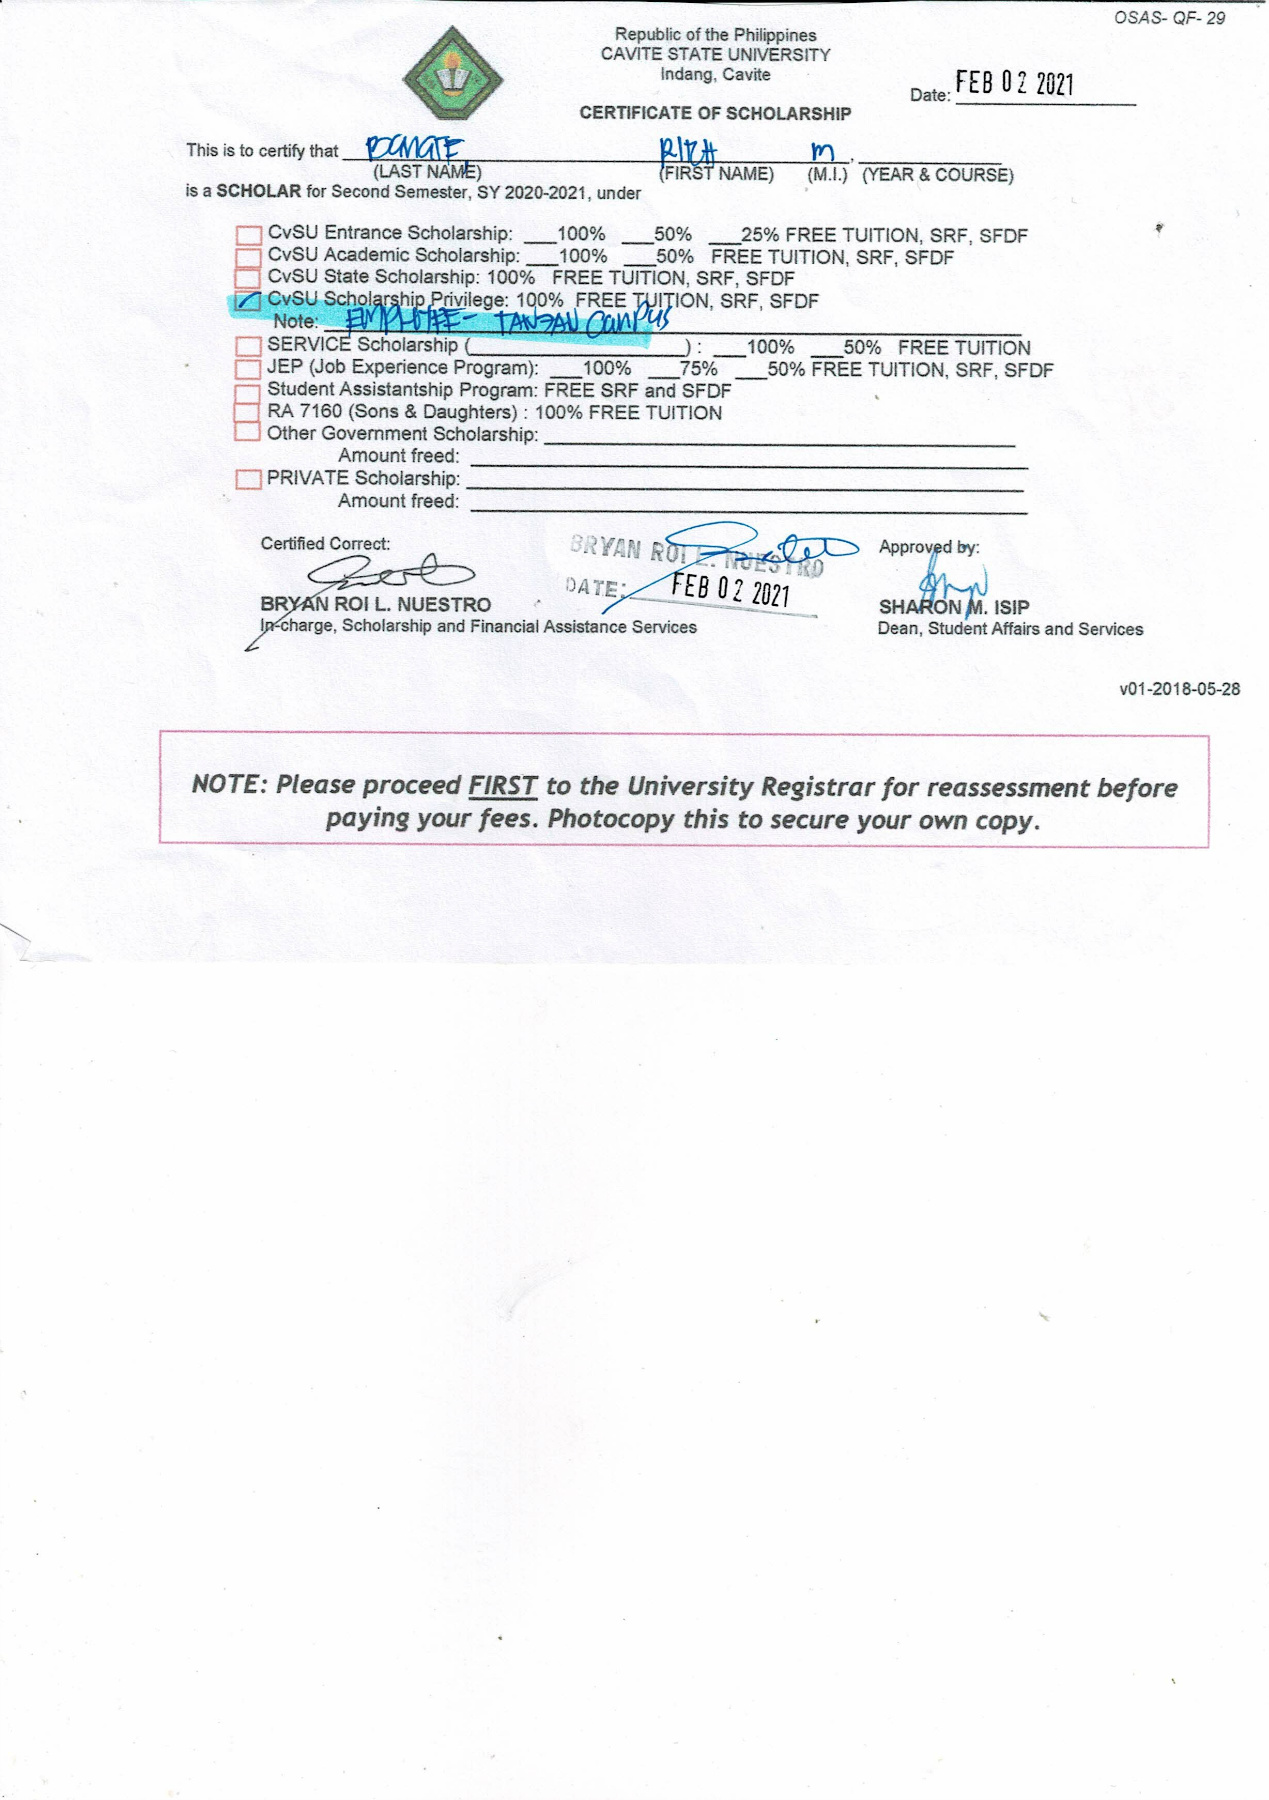 OSAS- QF- 29
Republic of the Philippines
CAVITE STATE UNIVERSITY
Indang, Cavite
Date: FEB 02 2021
CERTIFICATE OF SCHOLARSHIP
This is to certify that M.
(LAST NAME) (FIRST NAME) (M.I.) (YEAR & COURSE)
is a SCHOLAR for Second Semester, SY 2020-2021, under
CvSU Entrance Scholarship: ___100% ___50% ___25% FREE TUITION, SRF, SFDF
CvSU Academic Scholarship: ___100% ___50% FREE TUITION, SRF, SFDF
CvSU State Scholarship: 100% FREE TUITION, SRF, SFDF
CvSU Scholarship Privilege: 100% FREE TUITION, SRF, SFDF
Note: EMPLOYEE- TANZA Campus
SERVICE Scholarship (____________________) : ___100% ___50% FREE TUITION
JEP (Job Experience Program): ___100% ___75% ___50% FREE TUITION, SRF, SFDF
Student Assistantship Program: FREE SRF and SFDF
RA 7160 (Sons & Daughters) : 100% FREE TUITION
Other Government Scholarship:
Amount freed:
PRIVATE Scholarship:
Amount freed:
Certified Correct:
BRYAN ROI L. NUESTRO
DATE: FEB 02 2021
Approved by:
BRYAN ROI L. NUESTRO
In-charge, Scholarship and Financial Assistance Services
SHARON M. ISIP
Dean, Student Affairs and Services
v01-2018-05-28
NOTE: Please proceed FIRST to the University Registrar for reassessment before
paying your fees. Photocopy this to secure your own copy.